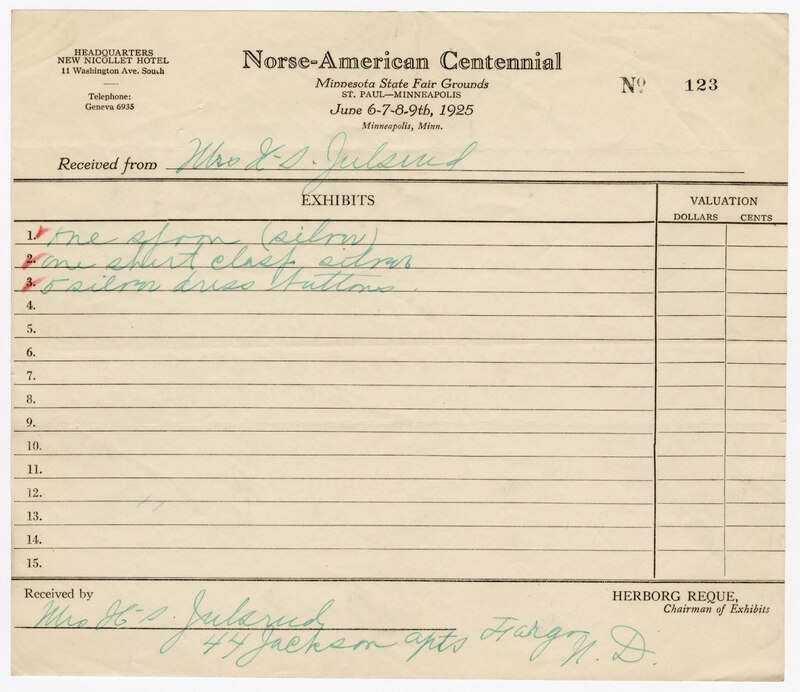 HEADQUARTERS
NEW NICOLLET HOTEL
11 Washington Ave. South
Telephone:
Geneva 6935
Norse-American Centennial
Minnesota State Fair Grounds
ST. PAUL—MINNEAPOLIS
June 6-7-8-9th, 1925
Minneapolis, Minn.
Nº 123
Received from Mrs H-S. Julsrud
EXHIBITS
VALUATION
DOLLARS CENTS
1. One spoon (silver)
2. one shirt clasp silver
3. 5 silver dress buttons.
4.
5.
6.
7.
8.
9.
10.
11.
12.
13.
14.
15.
Received by
HERBORG REQUE,
Chairman of Exhibits
Mrs H-S. Julsrud
44 Jackson apts Fargo N. D.